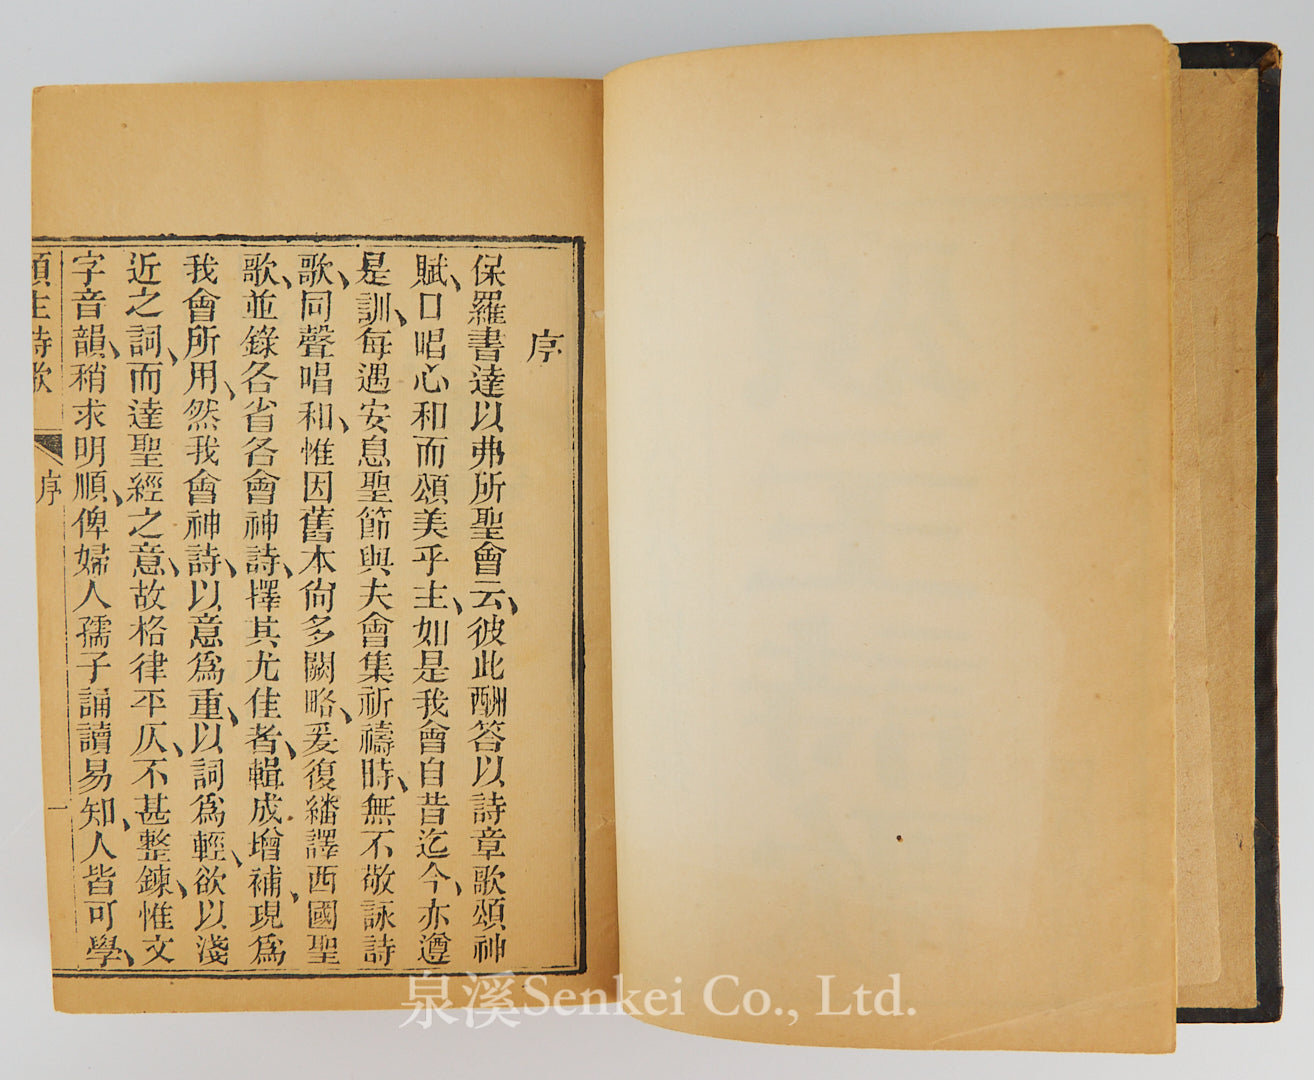 序
保羅書達以弗所聖會云、彼此酬答以詩章歌頌神
賦、口唱心和而頌美乎主、如是我會自昔迄今、亦遵
是訓、每遇安息聖節與夫會集祈禱時、無不敬詠詩
歌、同聲唱和、惟因舊本尙多闕略、爰復繙譯西國聖
歌、並錄各省各會神詩、擇其尤佳者、輯成增補、現爲
我會所用、然我會神詩、以意爲重、以詞爲輕、欲以淺
近之詞、而達聖經之意、故格律平仄、不甚整鍊、惟文
字音韻、稍求明順、俾婦人孺子誦讀易知、人皆可學、
頌主詩歌 序 一
泉溪Senkei Co., Ltd.